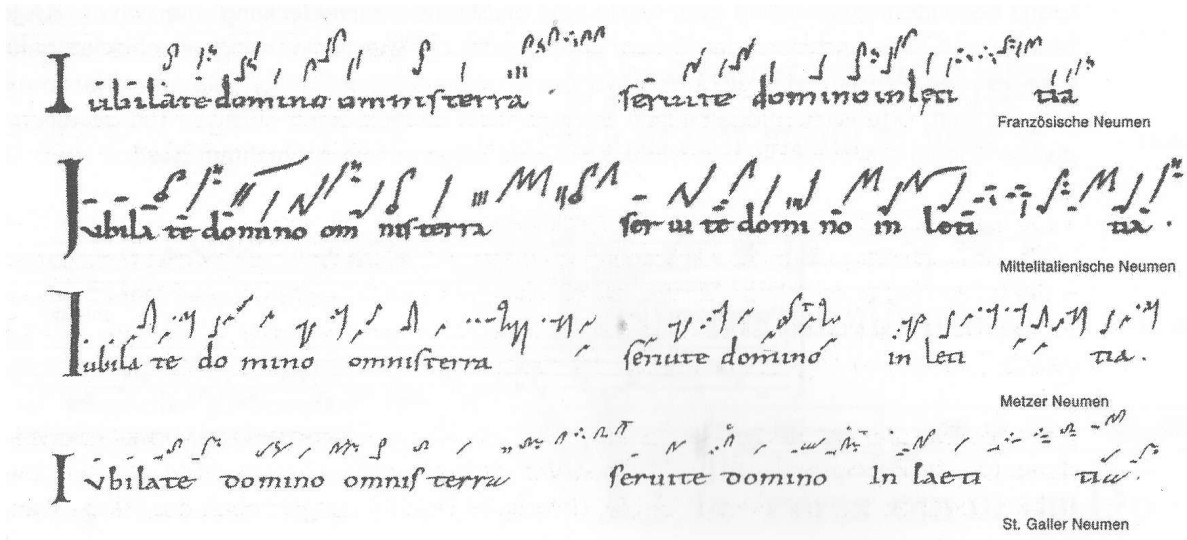 Iubilate domino omnis terra seruite domino in leti tia
Französische Neumen
Iubila te domino om nis terra serui te domi no in leti tia.
Mittelitalienische Neumen
Iubila te do mino omnis terra seruite domino in leti tia.
Metzer Neumen
Iubilate domino omnis terra seruite domino In laeti tia.
St. Galler Neumen